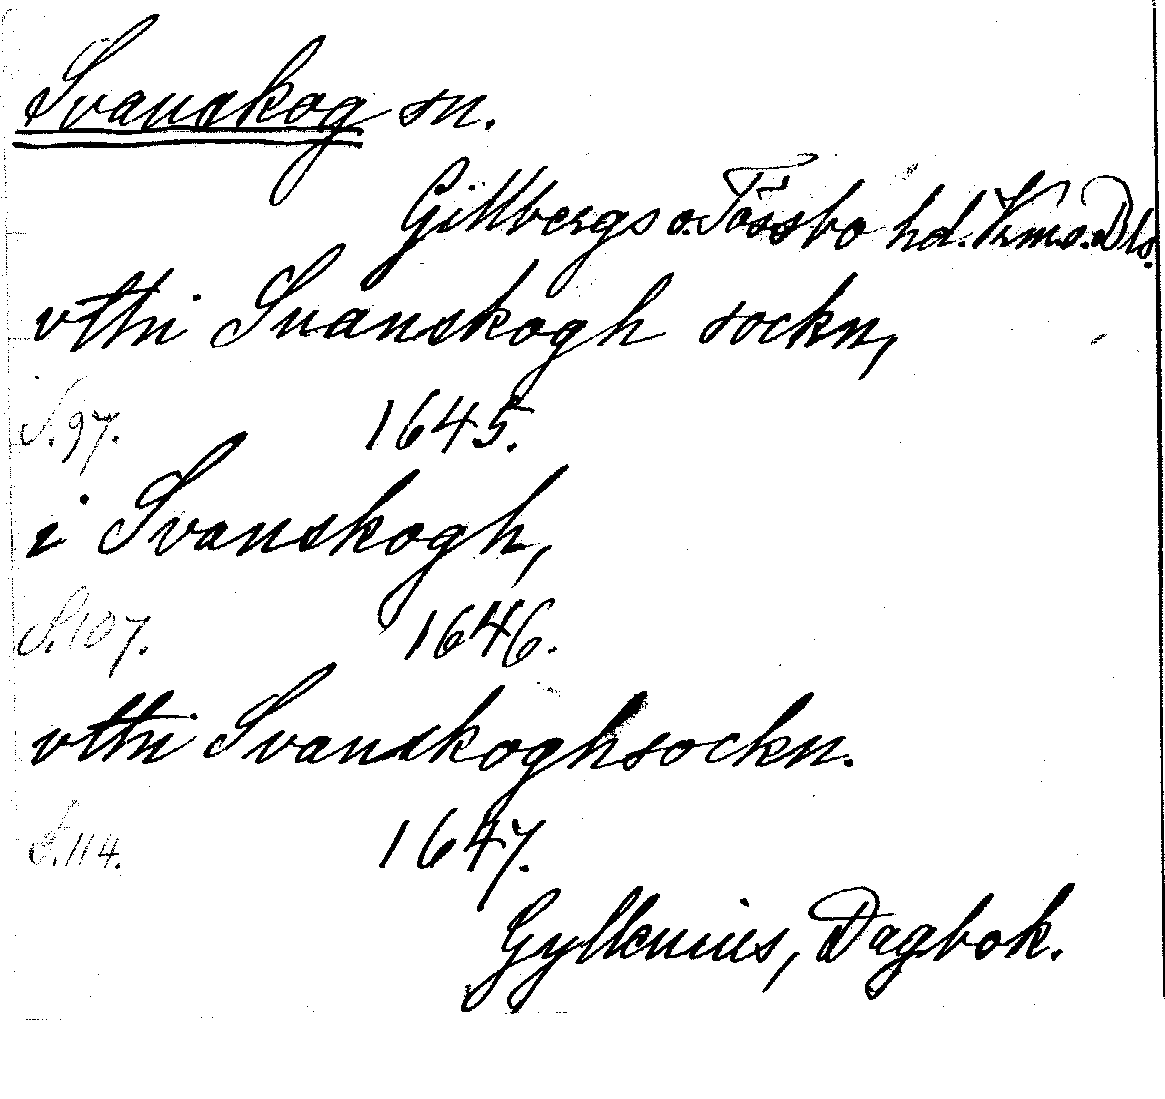 Svanskog sn.
Gillbergs o. Tössbo hd. Vrm. o. Dls.
vthi Svanskogh sockn,
S. 97. 1645.
i Svanskogh,
S. 107. 1646.
vthi Svanskoghsockn.
S. 114. 1647.
Gyllenius, Dagbok.